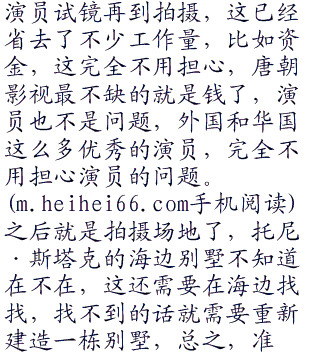 演员试镜再到拍摄，这已经
省去了不少工作量，比如资
金，这完全不用担心，唐朝
影视最不缺的就是钱了，演
员也不是问题，外国和华国
这么多优秀的演员，完全不
用担心演员的问题。
(m.heihei66.com手机阅读)
之后就是拍摄场地了，托尼
·斯塔克的海边别墅不知道
在不在，这还需要在海边找
找，找不到的话就需要重新
建造一栋别墅，总之，准